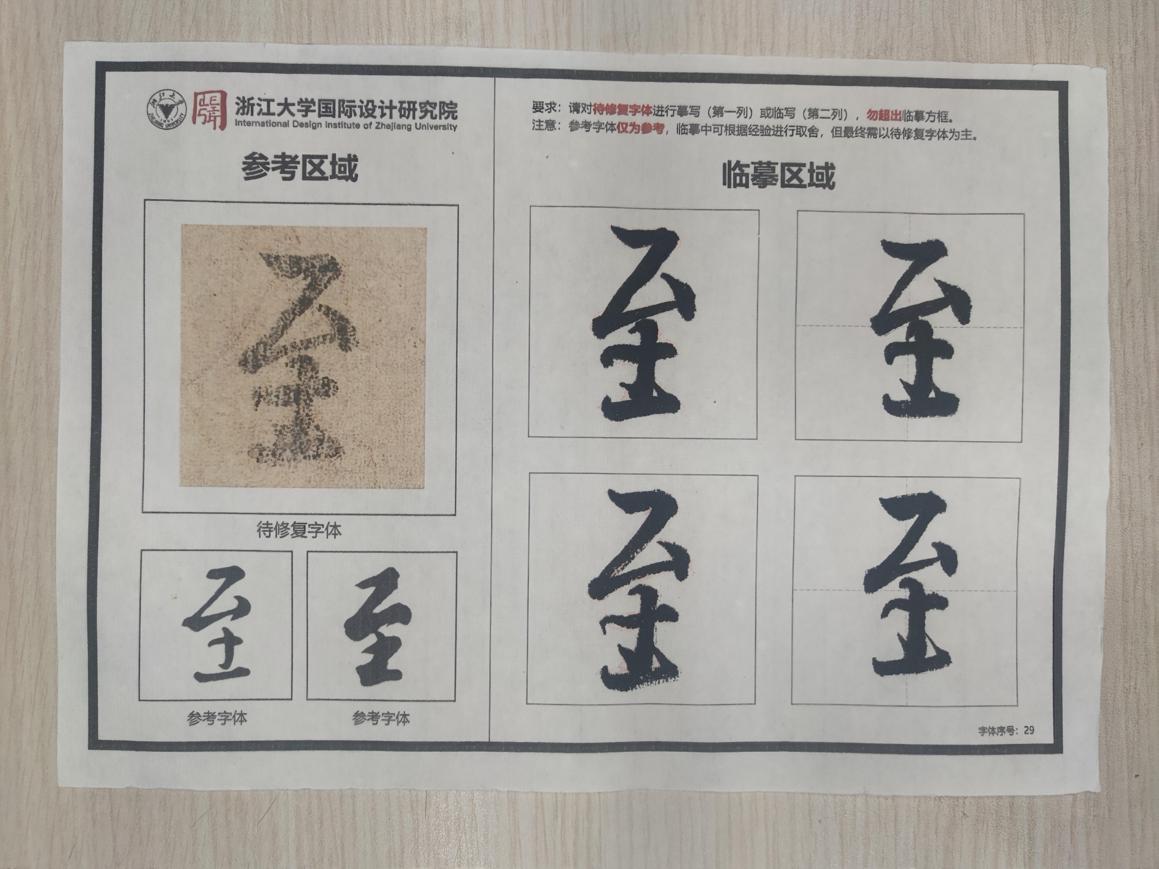 浙江大学国际设计研究院
International Design Institute of Zhejiang University
参考区域
至
待修复字体
至
至
参考字体
参考字体
要求：请对待修复字体进行摹写（第一列）或临写（第二列），勿超出临摹方框。
注意：参考字体仅为参考，临摹中可根据经验进行取舍，但最终需以待修复字体为主。
临摹区域
至
至
至
至
字体序号：29